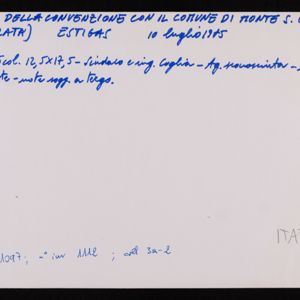 DELLA CONVENZIONE CON IL COMUNE DI MONTE S.
RATA) ESTIGAS 10 luglio 1975
col. 12,5x17,5 - Sindaco e ing. Coglia - Ag. sconosciuta -
note sogg. a tergo.
ITA
1097; n° inv 1112; coll 3a-2